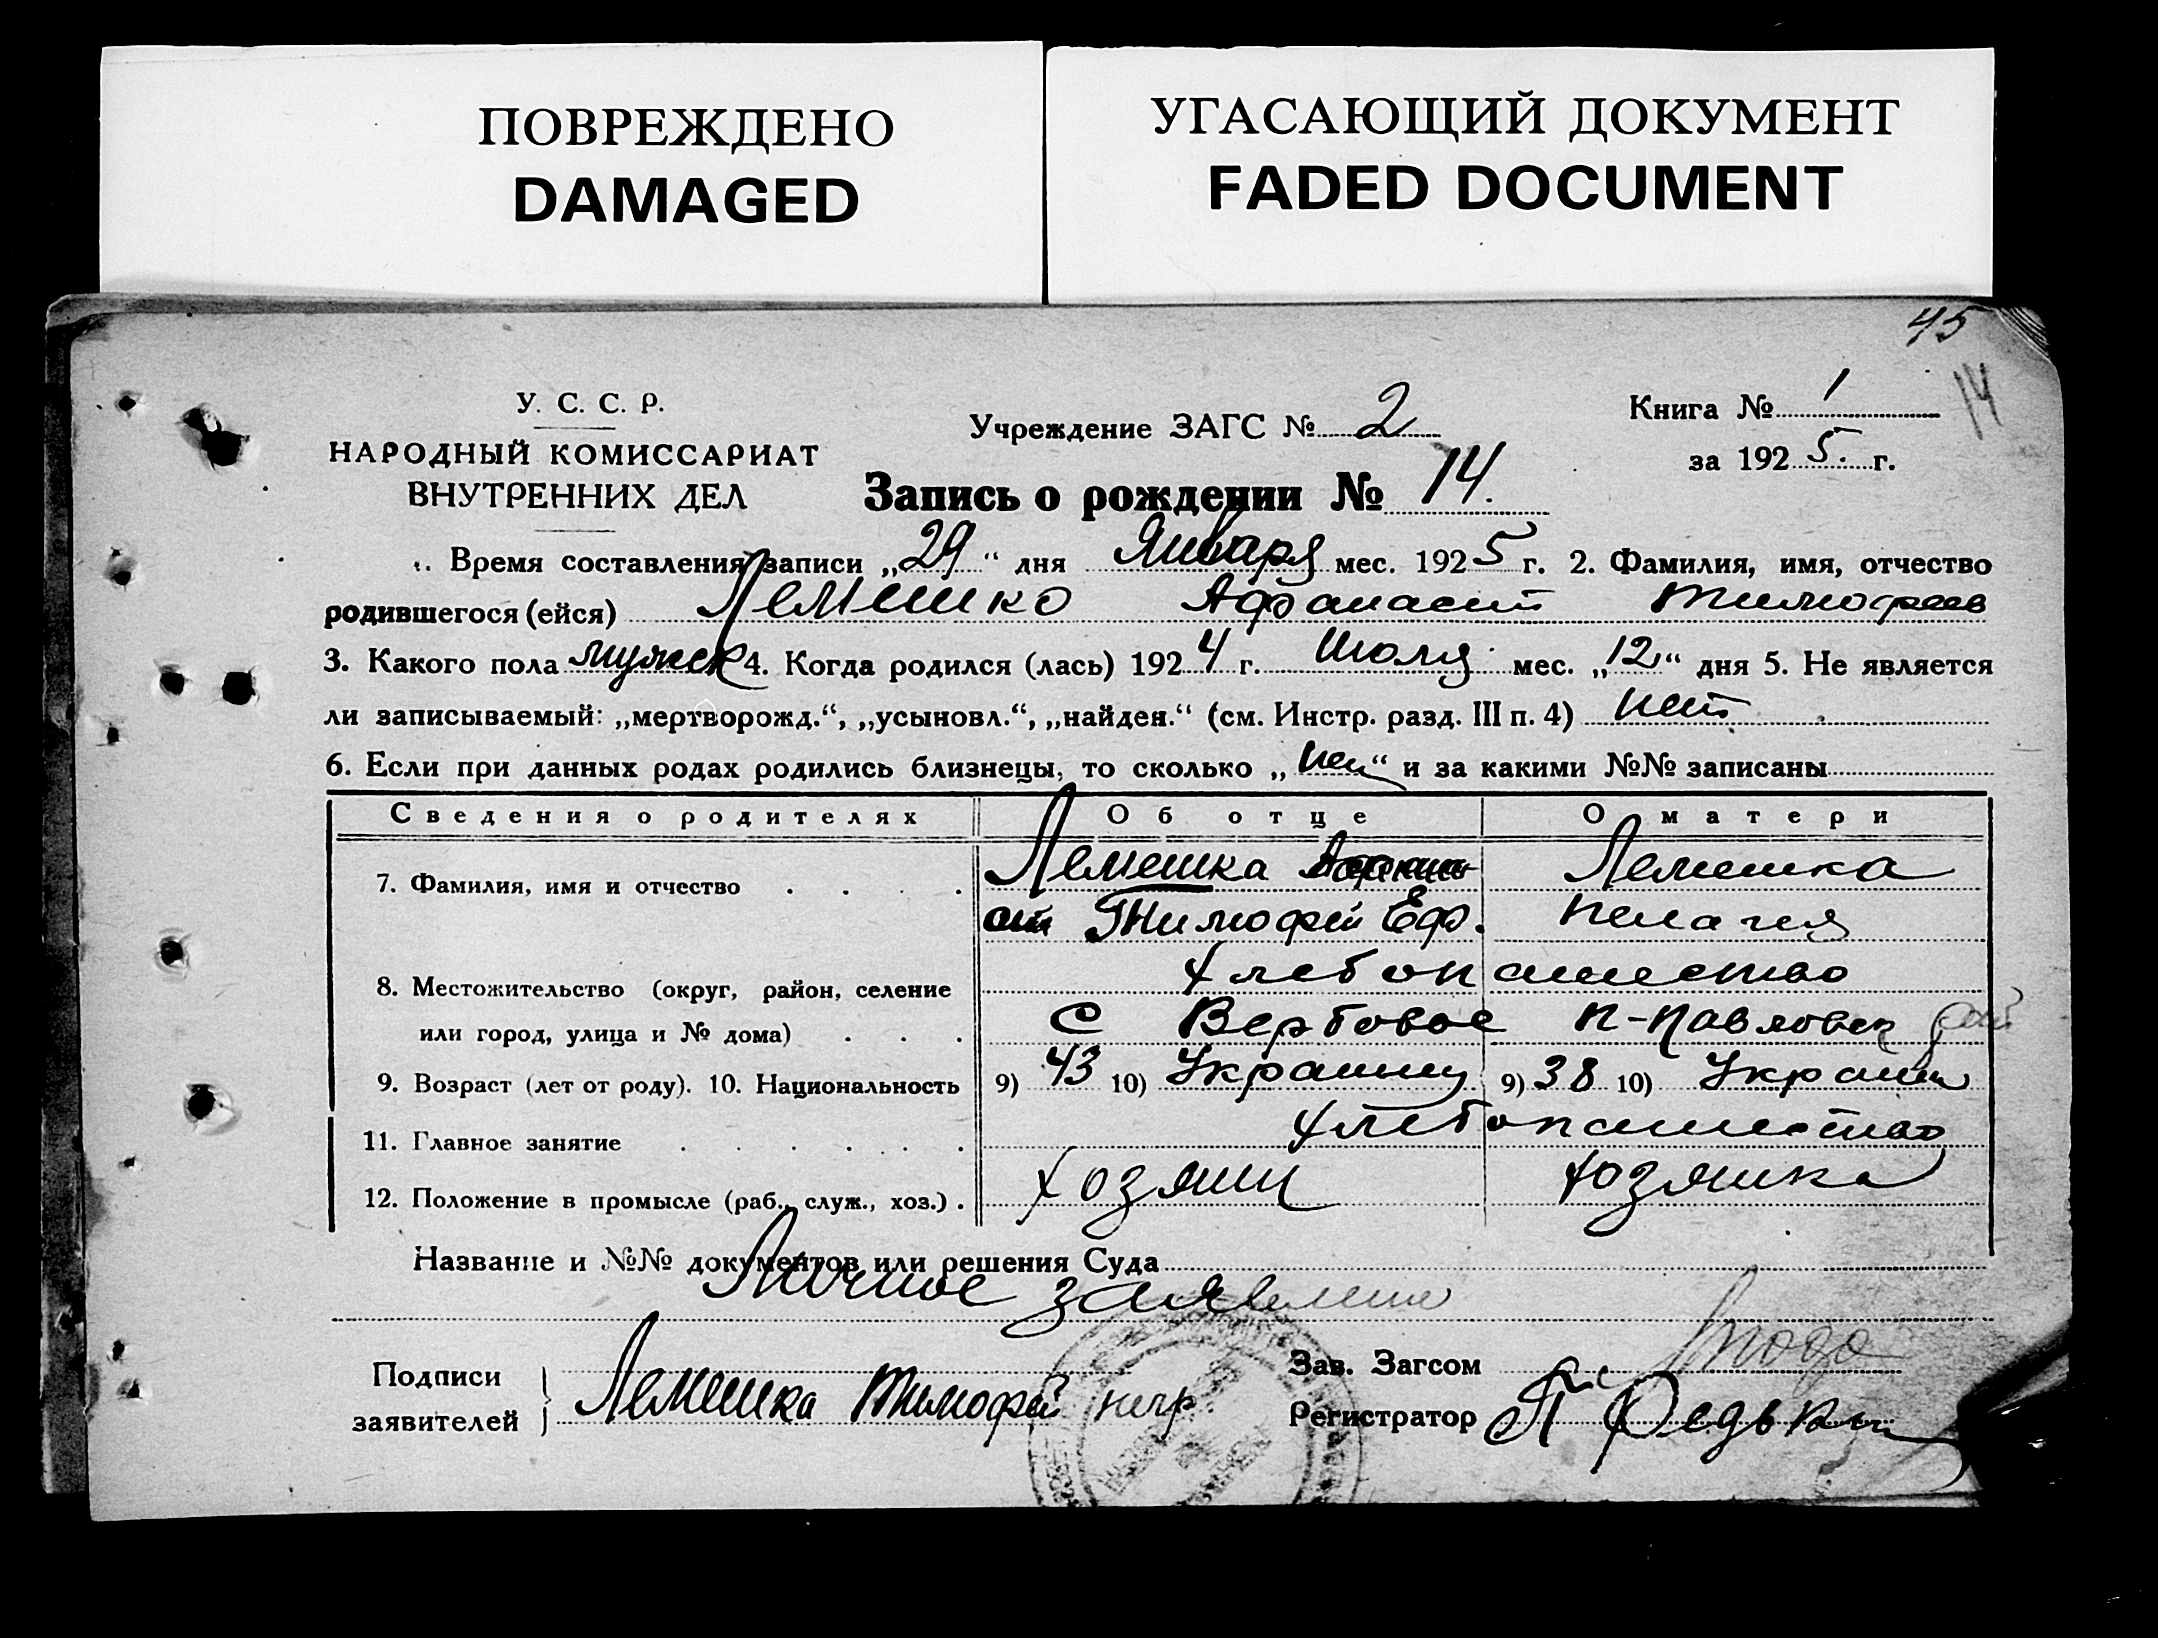 ПОВРЕЖДЕНО
DAMAGED
УГАСАЮЩИЙ ДОКУМЕНТ
FADED DOCUMENT
45
14
У. С. С. Р.
НАРОДНЫЙ КОМИССАРИАТ
ВНУТРЕННИХ ДЕЛ
Учреждение ЗАГС № 2
Книга № 1
за 1925. г.
Запись о рождении № 14.
Время составления записи „29“ дня Января мес. 1925 г. 2. Фамилия, имя, отчество
родившегося (ейся) Лемешко Афанасий Тимофеев
3. Какого пола мужск 4. Когда родился (лась) 1924 г. Июля мес. „12“ дня 5. Не является
ли записываемый: „мертворожд.“, „усыновл.“, „найден.“ (см. Инстр. разд. III п. 4) нет
6. Если при данных родах родились близнецы, то сколько „нет“ и за какими №№ записаны
Сведения о родителях Об отце О матери
7. Фамилия, имя и отчество Лемешка Лемешка
Тимофей Еф. Пелагия
хлебопашество
8. Местожительство (округ, район, селение
или город, улица и № дома) С Вербовое П-Павловск
9. Возраст (лет от роду). 10. Национальность 9) 43 10) Украинц 9) 38 10) Украин
11. Главное занятие хлебопашество
12. Положение в промысле (раб., служ., хоз.) хозяин хозяйка
Название и №№ документов или решения Суда
Личное заявление
Подписи
заявителей Лемешка Тимофей негр.
Зав. Загсом
Регистратор П Редьки